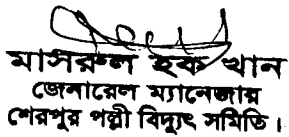 মাসরুল হক খান
জেনারেল ম্যানেজার
শেরপুর পল্লী বিদ্যুৎ সমিতি।